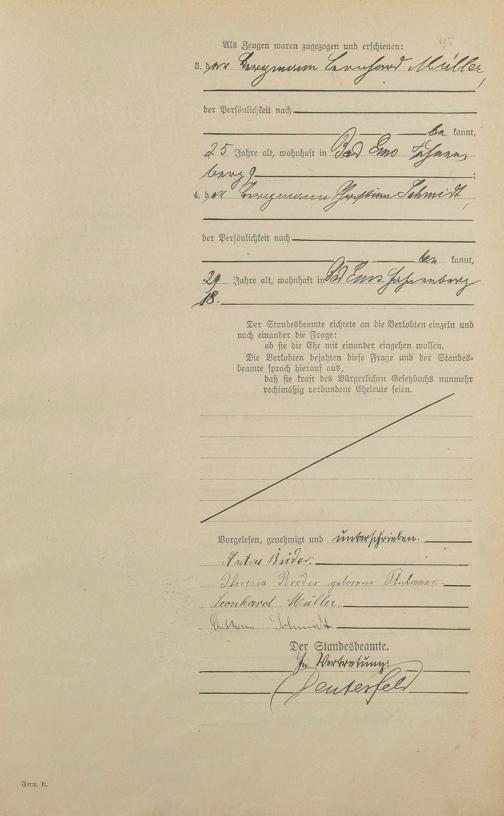 Als Zeugen waren zugezogen und erschienen:
3. der Bergmann Leonhard Müller,
der Persönlichkeit nach
be kannt,
25 Jahre alt, wohnhaft in Bad Ems
berg 9;
4. der Bergmann Christian Schmidt,
der Persönlichkeit nach
be kannt,
29 Jahre alt, wohnhaft in Bad Ems
18.
Der Standesbeamte richtete an die Verlobten einzeln und
nach einander die Frage:
ob sie die Ehe mit einander eingehen wollen.
Die Verlobten bejahten diese Frage und der Standes-
beamte sprach hierauf aus,
daß sie kraft des Bürgerlichen Gesetzbuchs nunmehr
rechtmäßig verbundene Eheleute seien.
Vorgelesen, genehmigt und unterschrieben.
Anton Bröder.
Theresia Bröder geborene
Leonhard Müller.
Schmidt
Der Standesbeamte.
In Vertretung:
Form. B.